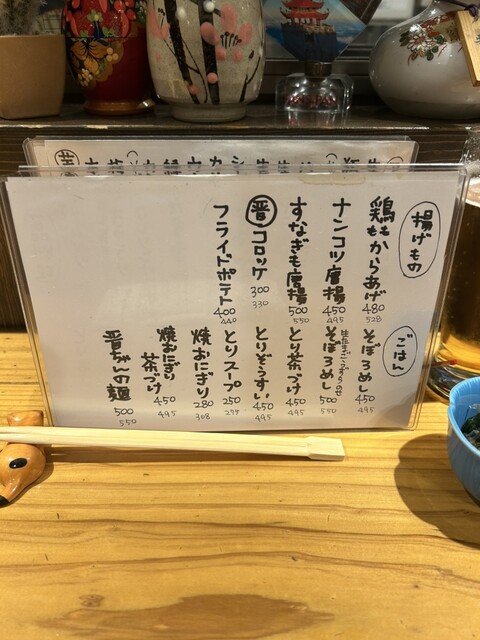 揚げもの
鶏ももからあげ 480 528
ナンコツ唐揚 450 495
すなぎも唐揚 500 550
晋コロッケ 300 330
フライドポテト 400 440
ごはん
そぼろめし 450 495
そぼろめし 500 550
とり茶づけ 450 495
とりぞうすい 450 495
とりスープ 250 277
焼おにぎり 280 308
焼おにぎり茶づけ 450 495
晋ちゃんの麺 500 550